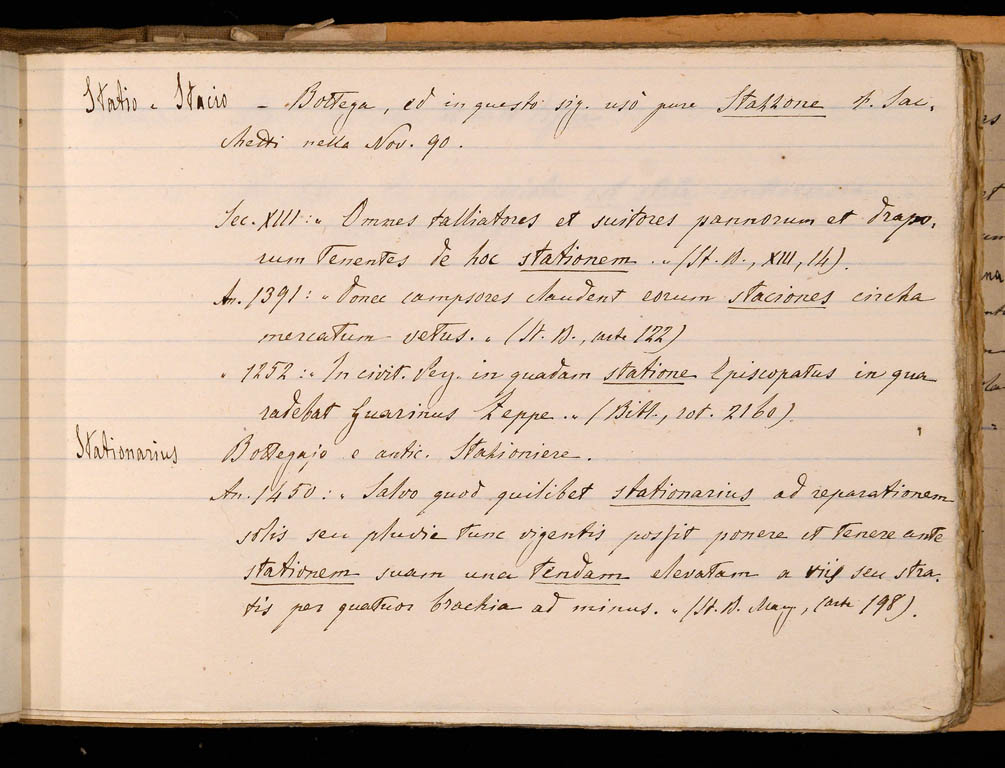 Statio e Stacio – Bottega, ed in questo sig. usò pure Stazzone F. Sac-
chetti nella Nov. 90.
Sec. XIII: „ Omnes talliatores et suitores pannorum et drapo-
rum tenentes de hoc stationem. „ (St. B., XIII, 14).
An. 1391: „ donec campsores claudent eorum staciones circha
mercatum vetus. „ (St. B., carte 122)
„ 1252: „ In civit. Rey. in quadam statione Episcopatus in qua
radebat Guarinus Zeppe. „ (Bibl., rot. 2160).
Stationarius Bottegajo e antic. Stazioniere.
An. 1450: „ Salvo quod quilibet stationarius ad reparationem
solis seu pluvie tunc vigentis possit ponere et tenere ante
stationem suam una tendam elevatam a viis seu stra-
tis per quatuor brachia ad minus. „ (St. B. Many, carte 198).